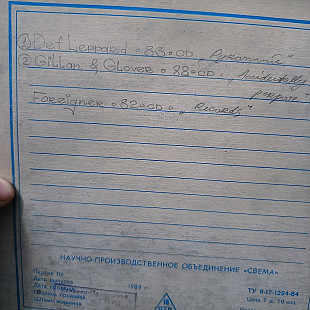 ① Def Leppard • 83.00 „Pyromania"
② Gillan & Glover • 88.00 „Accidentally
purpose"
Foreigner • 82.00 • „Records"
НАУЧНО-ПРОИЗВОДСТВЕННОЕ ОБЪЕДИНЕНИЕ «СВЕМА»
Партия №
Дата выпуска
Дата 1989 г.
продавца
ТУ 6-17-1294-84
Цена 7 р. 10 коп.